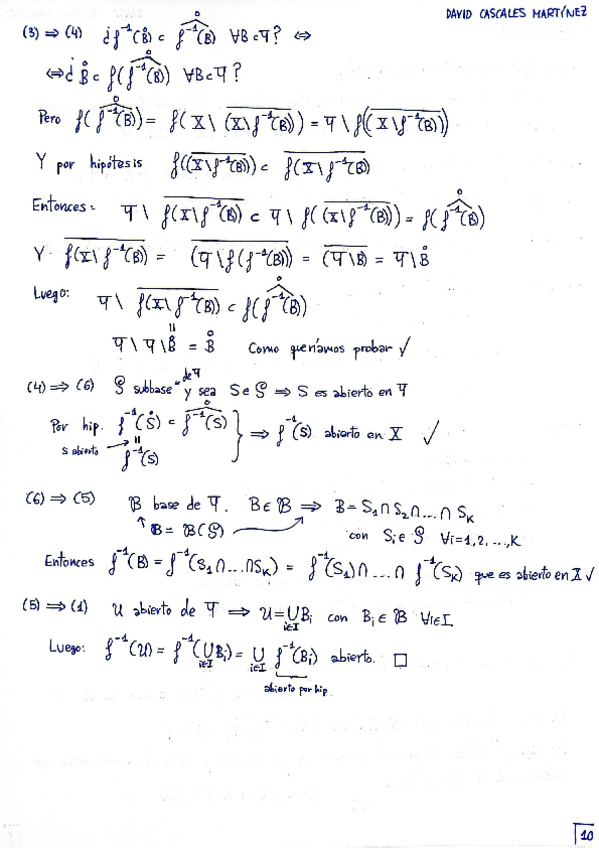 DAVID CASCALES MARTÍNEZ
(3) ⇒ (4) ¿ f⁻¹(B̊) ⊂ \overset{\circ}{\widehat{f⁻¹(B)}} ∀B⊂Y ? ⇔
⇔ ¿ B̊ ⊂ f(\overset{\circ}{\widehat{f⁻¹(B)}}) ∀B⊂Y ?
Pero f(\overset{\circ}{\widehat{f⁻¹(B)}}) = f(X \ \overline{(X\f⁻¹(B))}) = Y \ f(\overline{(X\f⁻¹(B))})
Y por hipótesis f(\overline{(X\f⁻¹(B))}) ⊂ \overline{f(X\f⁻¹(B))}
Entonces: Y \ \overline{f(X\f⁻¹(B))} ⊂ Y \ f(\overline{(X\f⁻¹(B))}) = f(\overset{\circ}{\widehat{f⁻¹(B)}})
Y \overline{f(X\f⁻¹(B))} = \overline{(Y\f(f⁻¹(B)))} = \overline{(Y\B)} = Y\B̊
Luego: Y \ \overline{f(X\f⁻¹(B))} ⊂ f(\overset{\circ}{\widehat{f⁻¹(B)}})
||
Y \ Y\B̊ = B̊ Como queríamos probar ✓
(4) ⇒ (6) 𝒮 subbase de Y y sea S∈𝒮 ⇒ S es abierto en Y
Por hip. f⁻¹(S̊) = \overset{\circ}{\widehat{f⁻¹(S)}} } ⇒ f⁻¹(S) abierto en X ✓
S abierto → || f⁻¹(S)
(6) ⇒ (5) ℬ base de Y. B∈ℬ ⇒ B = S₁∩S₂∩...∩S_K
ℬ = ℬ(𝒮) con Sᵢ∈𝒮 ∀i=1,2,...,K
Entonces f⁻¹(B) = f⁻¹(S₁∩...∩S_K) = f⁻¹(S₁)∩...∩f⁻¹(S_K) que es abierto en X ✓
(5) ⇒ (1) U abierto de Y ⇒ U = ⋃_{i∈I} Bᵢ con Bᵢ∈ℬ ∀i∈I
Luego: f⁻¹(U) = f⁻¹(⋃_{i∈I} Bᵢ) = ⋃_{i∈I} f⁻¹(Bᵢ) abierto. □
abierto por hip.
10